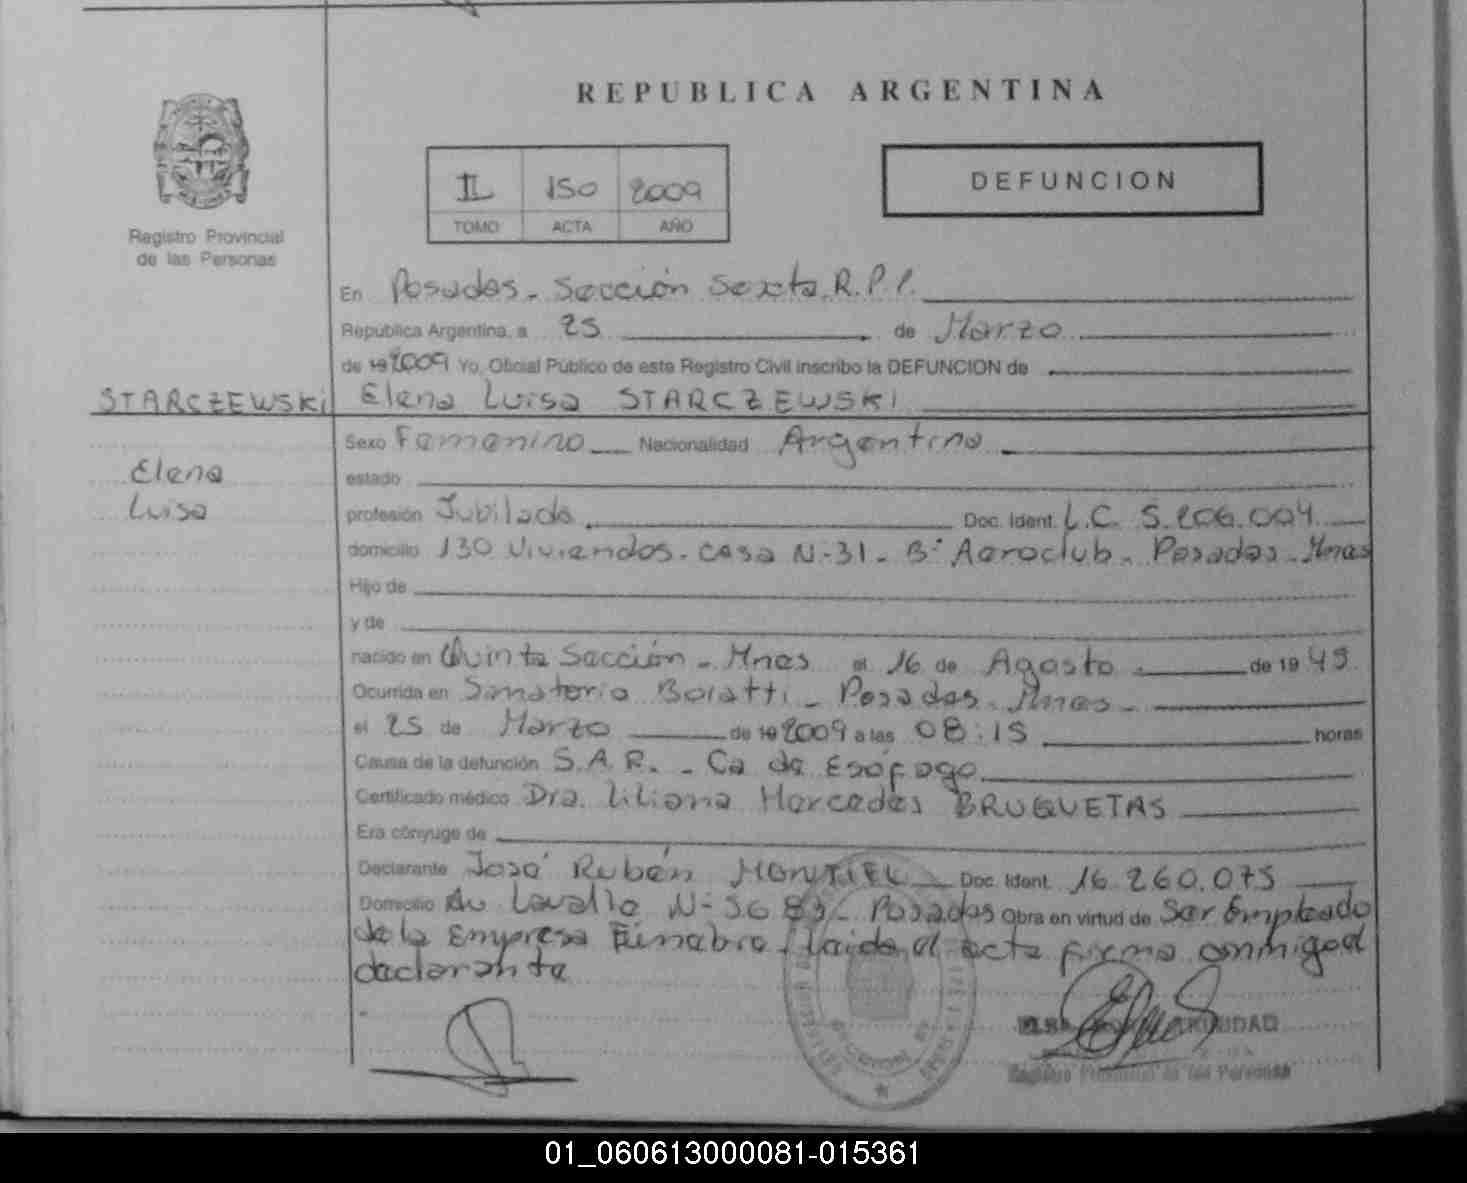 REPUBLICA ARGENTINA
Registro Provincial
de las Personas
II 150 2009
TOMO ACTA AÑO
DEFUNCION
En Posadas - Sección Sexta R.P.P.
República Argentina, a 25 de Marzo
de 19 2009 Yo, Oficial Público de este Registro Civil inscribo la DEFUNCION de
STARCZEWSKI
Elena Luisa STARCZEWSKI
Elena
Luisa
Sexo Femenino Nacionalidad Argentina
estado
profesión Jubilada Doc. Ident. L.C. 5.206.004
domicilio 130 Viviendas - Casa N-31 - Bº Aeroclub - Posadas - Mnes
Hijo de
y de
nacido en Quinta Sección - Mnes el 16 de Agosto de 19 45
Ocurrida en Sanatorio Boratti - Posadas - Mnes -
el 25 de Marzo de 19 2009 a las 08:15 horas
Causa de la defunción S.A.R. - Ca de Esófago
Certificado médico Dra. Liliana Mercedes BRUQUETAS
Era cónyuge de
Declarante José Rubén MONTIEL Doc. Ident. 16.260.075
Domicilio Av Lavalle N-3683 - Posadas Obra en virtud de Ser Empleado
de la Empresa Fúnebre - Leida el acta firma conmigo el
declarante
Registro Provincial de las Personas
01_060613000081-015361